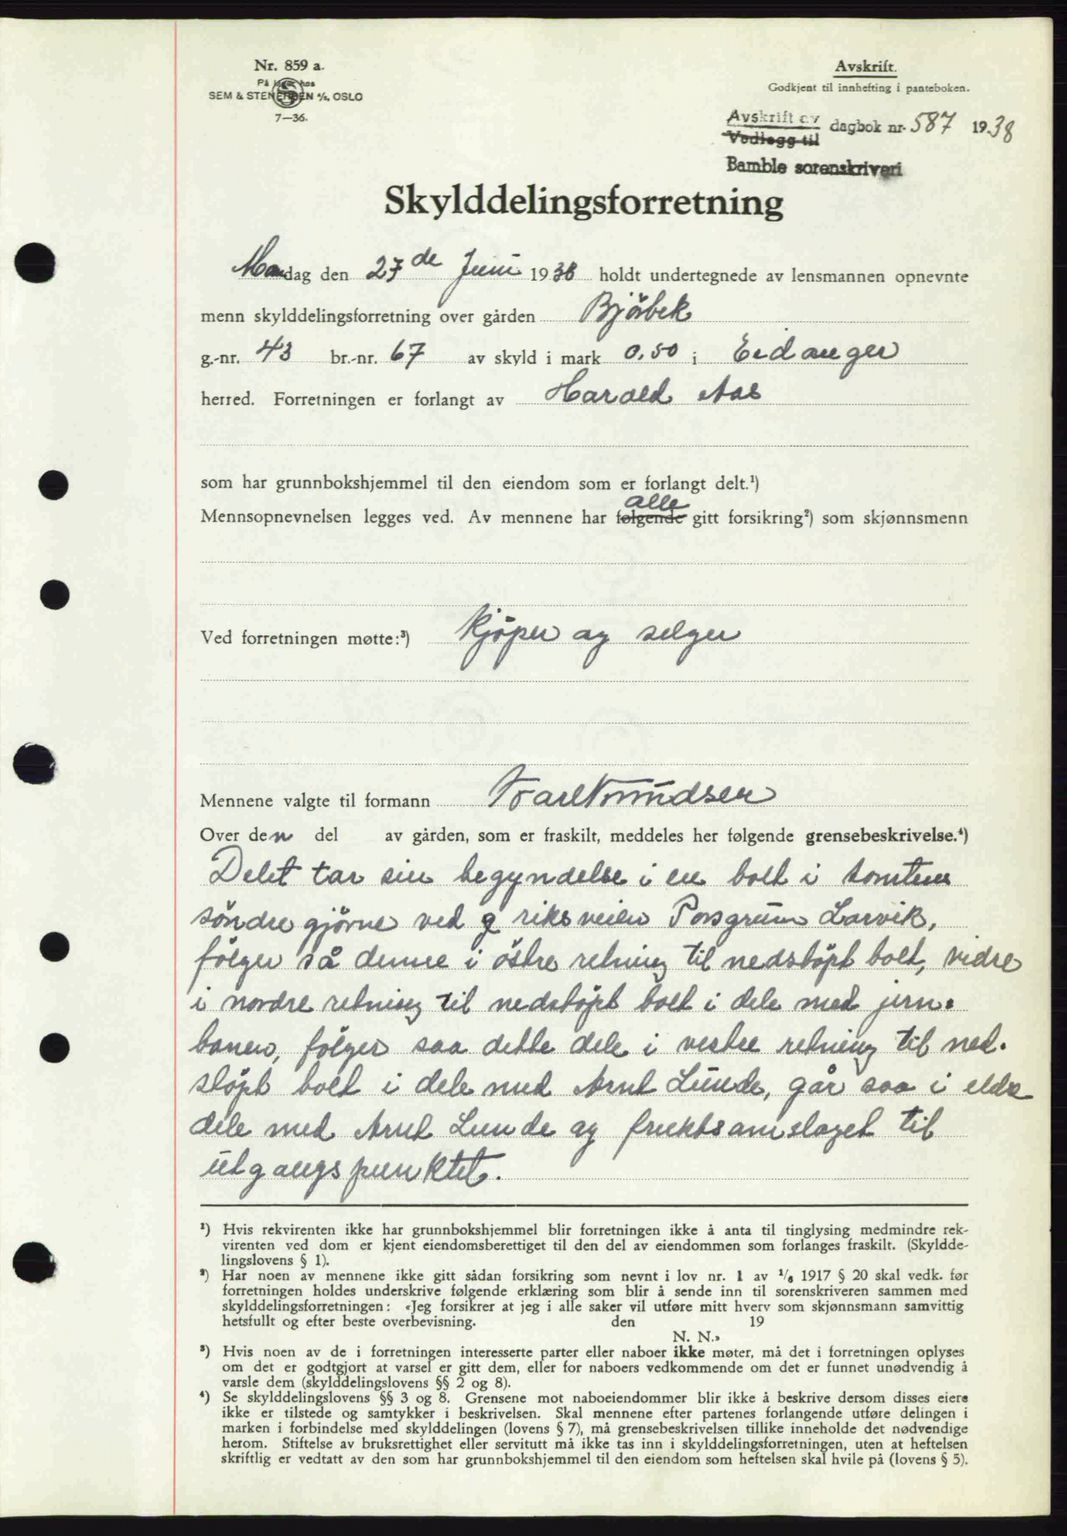 Nr. 859 a.
På lager hos
SEM & STENERSEN A/S, OSLO
7—36.
Avskrift.
Godkjent til innhefting i panteboken.
Avskrift av
Vedlegg til
dagbok nr. 587 1938
Bamble sorenskriveri
Skylddelingsforretning
Mandag den 27de Juni 1938 holdt undertegnede av lensmannen opnevnte
menn skylddelingsforretning over gården Bjørbek
g.-nr. 43 br.-nr. 67 av skyld i mark 0,50 i Eidanger
herred. Forretningen er forlangt av Harald Aas
som har grunnbokshjemmel til den eiendom som er forlangt delt.¹)
alle
Mennsopnevnelsen legges ved. Av mennene har følgende gitt forsikring²) som skjønnsmenn
Ved forretningen møtte:³) Kjøper og selger
Mennene valgte til formann Karl Knudsen
Over den del av gården, som er fraskilt, meddeles her følgende grensebeskrivelse.⁴)
Delet tar sin begyndelse i en bolt i tomtens
søndre gjørne ved riksveien Porsgrunn Larvik,
følger så denne i østre retning til nedstøpt bolt, vidre
i nordre retning til nedstøpt bolt i dele med jern-
banen, følger saa dette dele i vestre retning til ned-
støpt bolt i dele med Arnt Lunde, går saa i eldre
dele med Arnt Lunde og fruktsamslaget til
utgangspunktet.
¹) Hvis rekvirenten ikke har grunnbokshjemmel blir forretningen ikke å anta til tinglysing medmindre rek-
virenten ved dom er kjent eiendomsberettiget til den del av eiendommen som forlanges fraskilt. (Skyldde-
lingslovens § 1).
²) Har noen av mennene ikke gitt sådan forsikring som nevnt i lov nr. 1 av 1/6 1917 § 20 skal vedk. før
forretningen holdes underskrive følgende erklæring som blir å sende inn til sorenskriveren sammen med
skylddelingsforretningen: «Jeg forsikrer at jeg i alle saker vil utføre mitt hverv som skjønnsmann samvittig
hetsfullt og efter beste overbevisning. den 19
N. N.»
³) Hvis noen av de i forretningen interesserte parter eller naboer ikke møter, må det i forretningen oplyses
om det er godtgjort at varsel er gitt dem, eller for naboers vedkommende om det er funnet unødvendig å
varsle dem (skylddelingslovens §§ 2 og 8).
⁴) Se skylddelingslovens §§ 3 og 8. Grensene mot naboeiendommer blir ikke å beskrive dersom disses eiere
ikke er tilstede og samtykker i beskrivelsen. Skal mennene efter partenes forlangende utføre delingen i
marken i forbindelse med skylddelingen (lovens § 7), må grensebeskrivelsen tillike inneholde det nødvendige
herom. Stiftelse av bruksrettighet eller servitutt må ikke tas inn i skylddelingsforretningen, uten at heftelsen
skriftlig er vedtatt av den som har grunnbokshjemmel til den eiendom som heftelsen skal hvile på (lovens § 5).